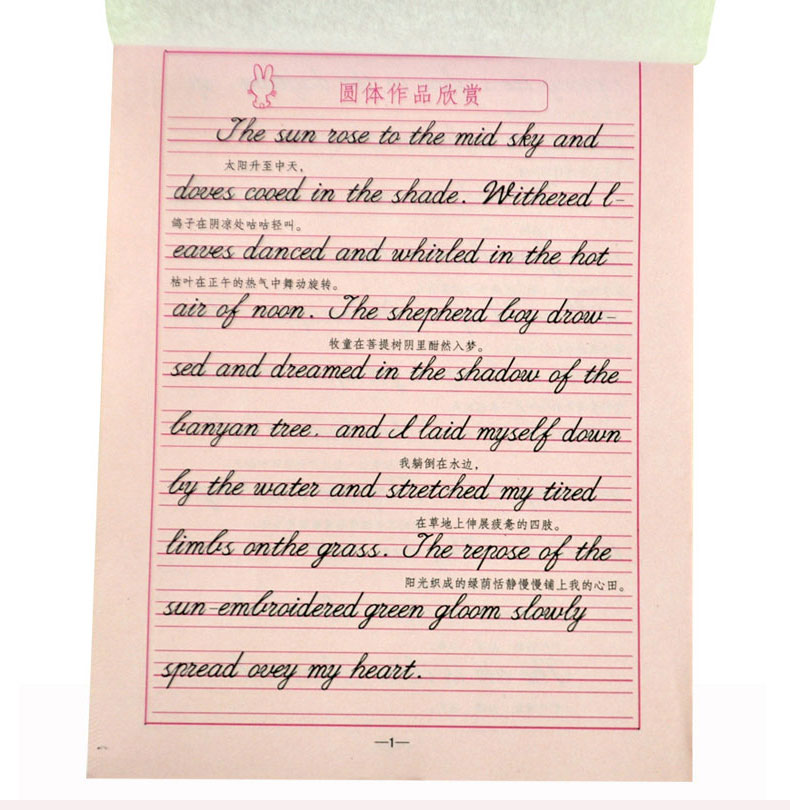 圆体作品欣赏
The sun rose to the mid sky and
太阳升至中天，
doves cooed in the shade. Withered l-
鸽子在阴凉处咕咕轻叫。
eaves danced and whirled in the hot
枯叶在正午的热气中舞动旋转。
air of noon. The shepherd boy drow-
牧童在菩提树阴里酣然入梦。
sed and dreamed in the shadow of the
banyan tree. and I laid myself down
我躺倒在水边，
by the water and stretched my tired
在草地上伸展疲惫的四肢。
limbs onthe grass. The repose of the
阳光织成的绿荫恬静慢慢铺上我的心田。
sun-embroidered green gloom slowly
spread ovey my heart.
—1—